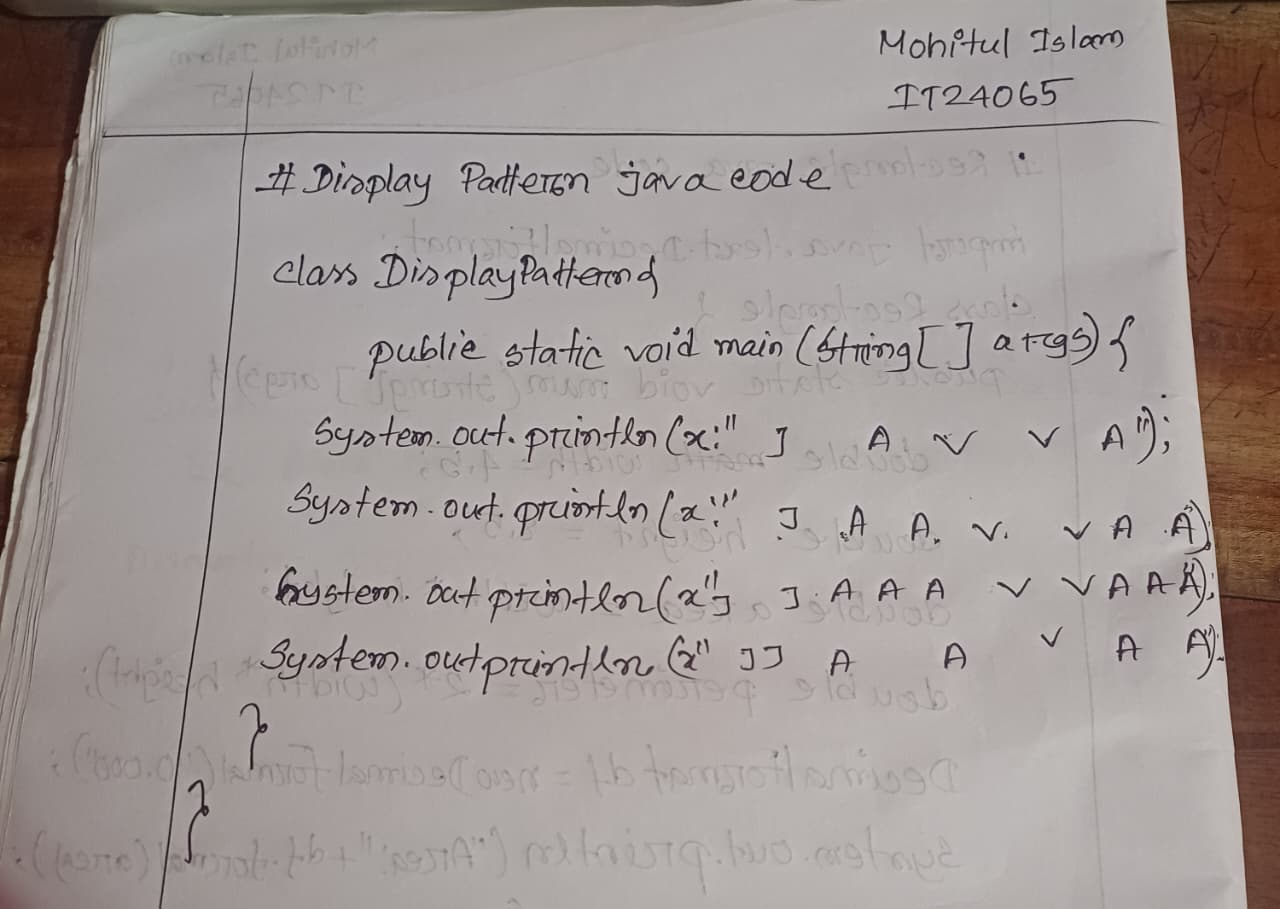 Mohitul Islam
IT24065
# Display Pattern java code
class DisplayPattern{
public static void main (String[] args) {
System.out.println (x:" J A V V A");
System.out.println (x:" J A A V. V A A");
System.out println (x"J J A A A V V A A A");
System.outprintln (x" JJ A A V A A");
}
}